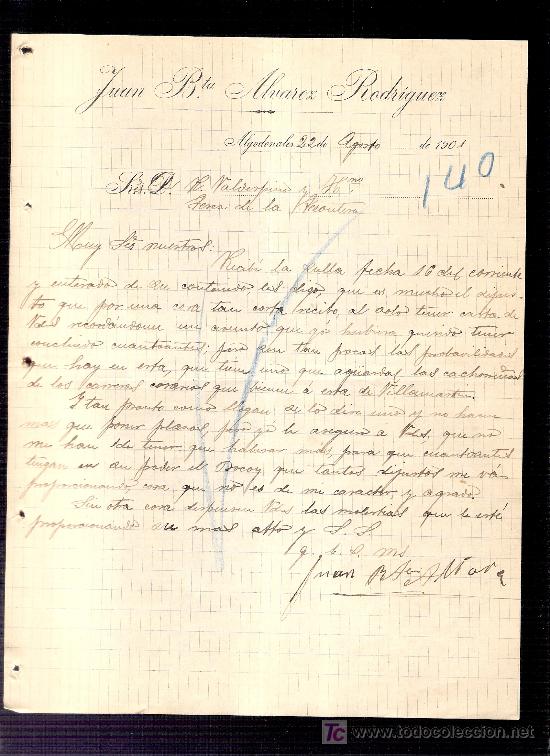 Juan B.ta Alvarez Rodriguez
Algodonales 22 de Agosto de 1901
140
Sres. D. R. Valdespino y Hno
Jerez de la Frontera
Muy Srs nuestros:
Recibí la suya fecha 16 del corriente
y enterado de su contenido les digo, que es mucho el disgus-
to que por una cosa tan corta recibo, al solo tener carta de
Vdes recordandome un asunto que yo hubiera querido tener
concluido cuanto antes; pero son tan pocas las probabilidades
que hay en esta, que tiene uno que aguardar las
de los carreros cosarios que vienen á esta de Villamartin.
Y tan pronto como llegan se lo dice uno y no hacen
mas que poner plazos, pero yo le aseguro a Vdes, que no
me han de tener que hablar mas, para que cuanto antes
tengan en su poder el Bocoy, que tantos disgustos me vá
proporcionando cosa que no es de mi caracter, y agrado
Sin otra cosa dispensen Vdes las molestias que le esté
proporcionando su mas atto y S. S.
q. b. s. m.
Juan B.ta Alvarez
todocoleccion
www.todocoleccion.net